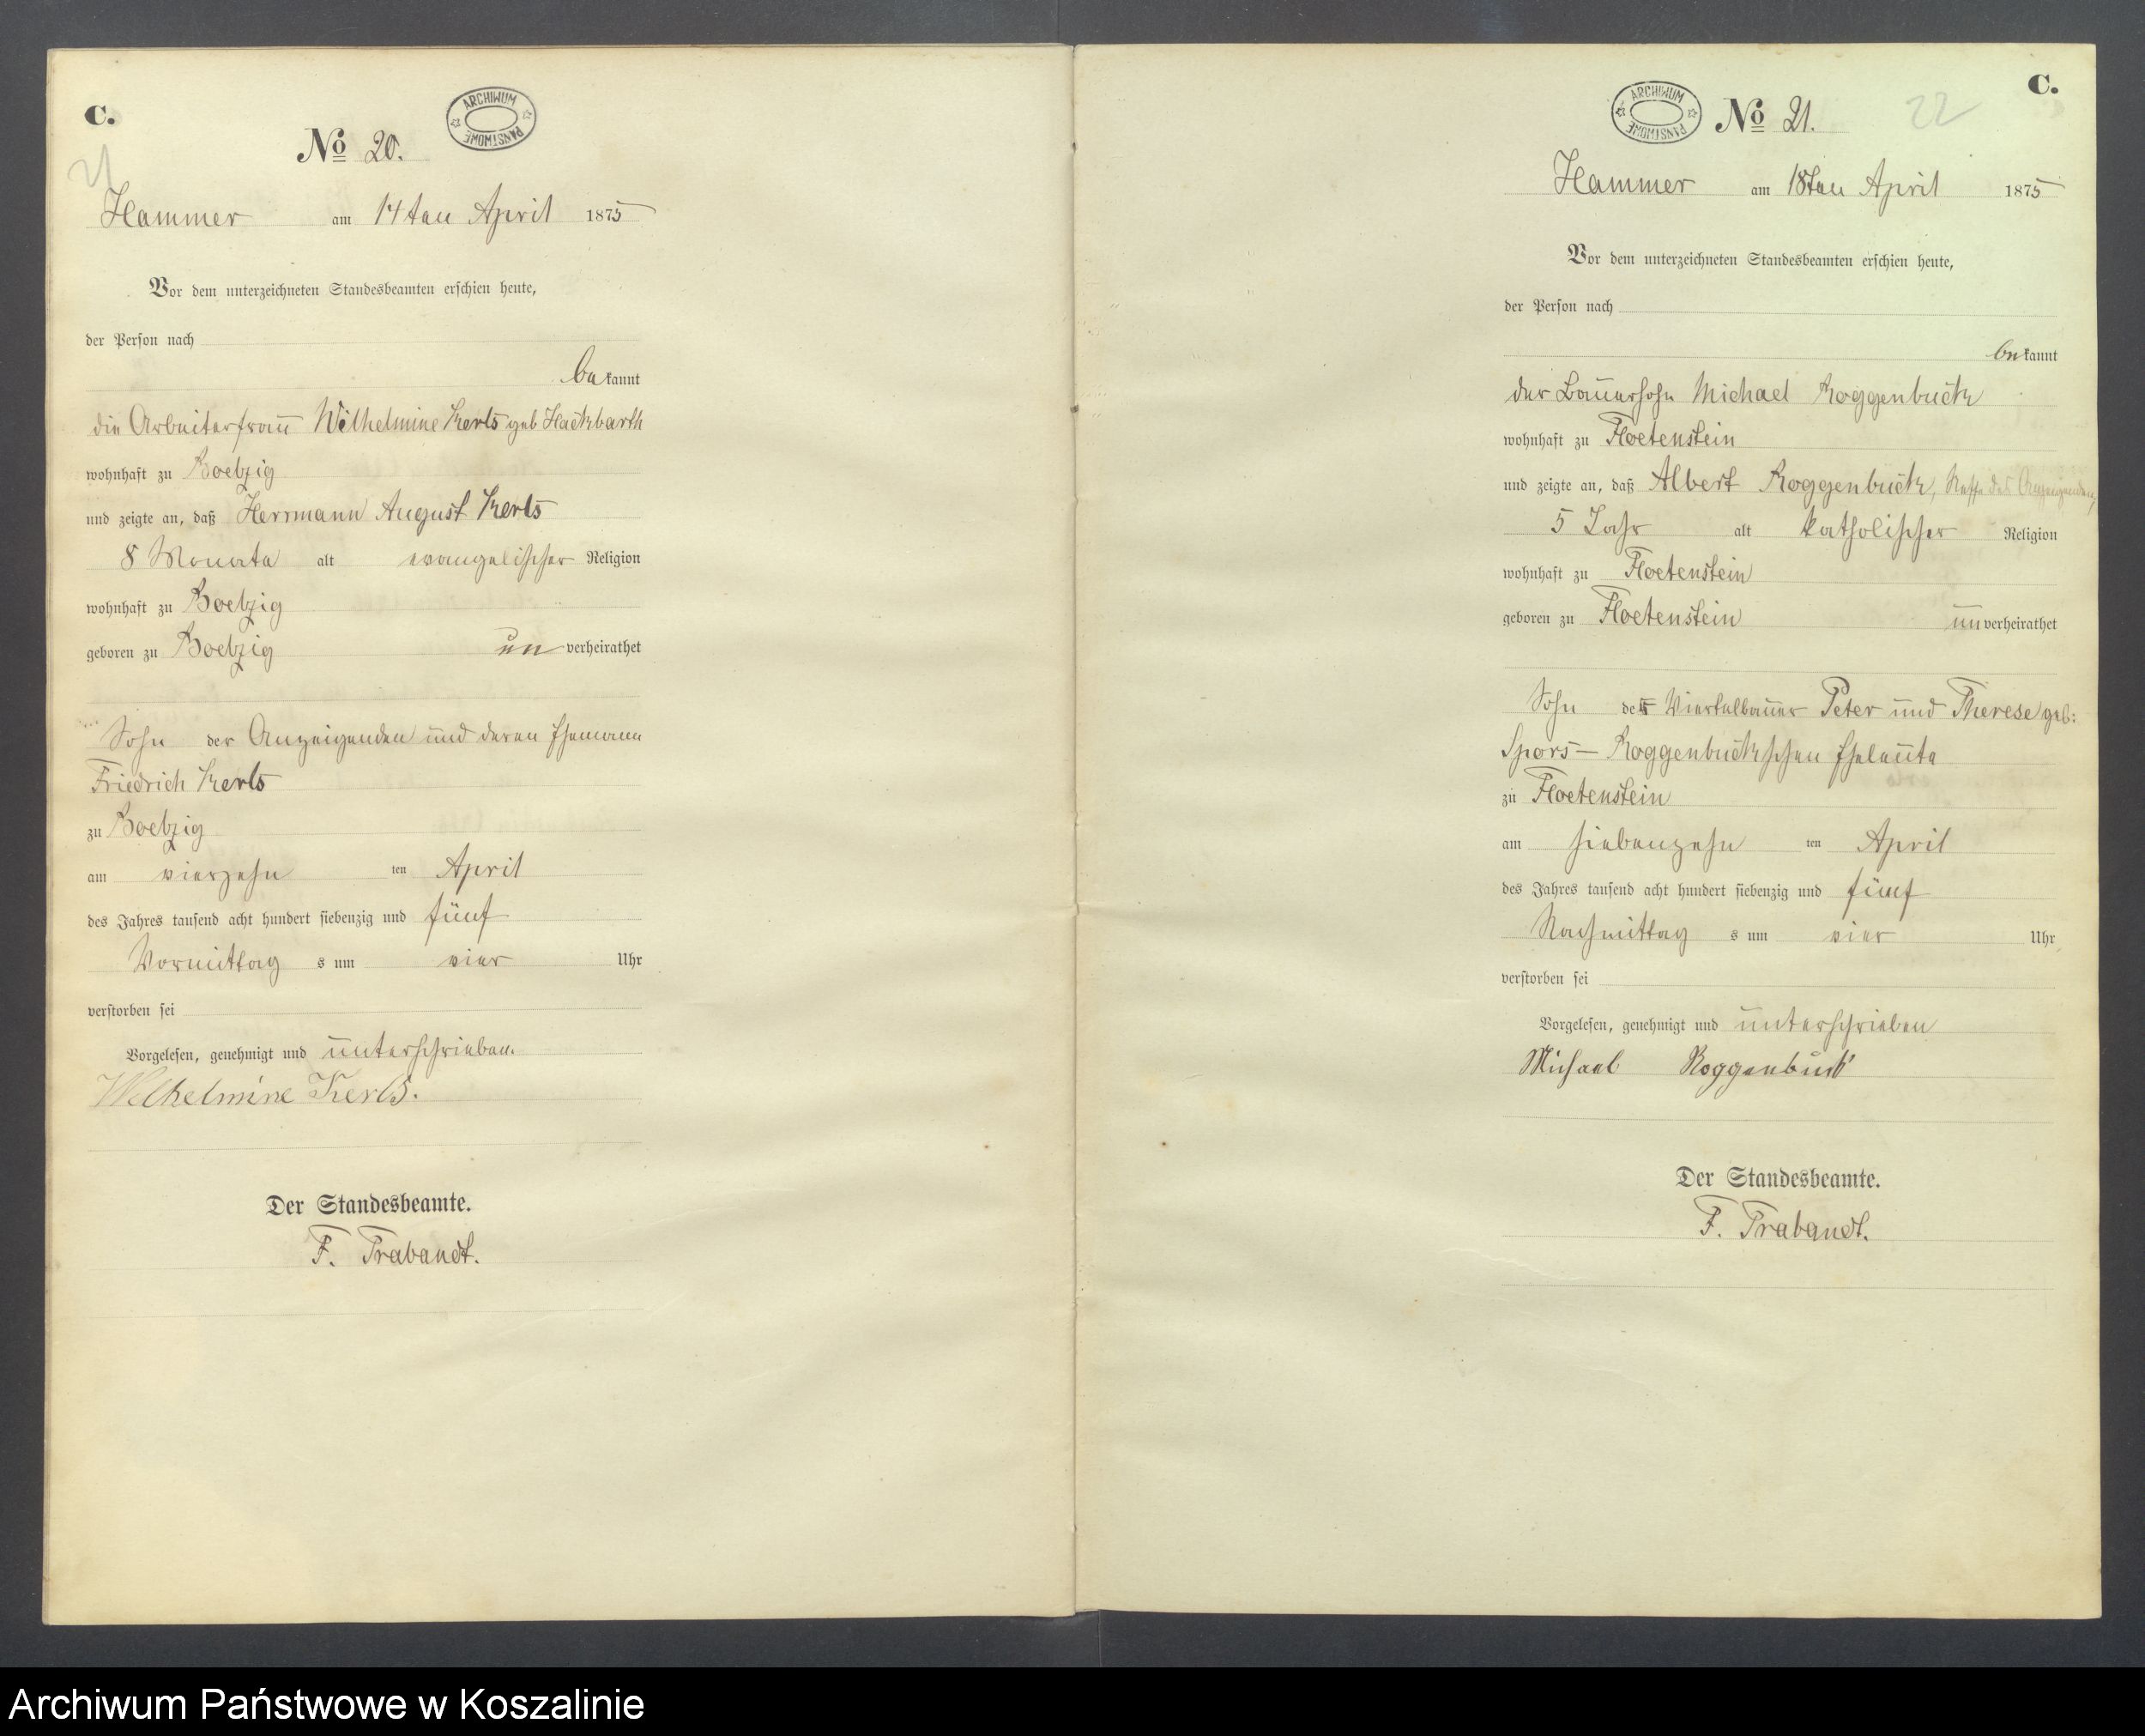 C.
ARCHIWUM PAŃSTWOWE
No 20.
21
Hammer am 14ten April 1875
Vor dem unterzeichneten Standesbeamten erschien heute,
der Person nach
bekannt
die Arbeiterfrau Wilhelmine Kerls geb Hackbarth
wohnhaft zu Boelzig
und zeigte an, daß Herrmann August Kerls
8 Monate alt evangelischer Religion
wohnhaft zu Boelzig
geboren zu Boelzig unverheirathet
Sohn der Anzeigenden und deren Ehemann
Friedrich Kerls
zu Boelzig
am vierzehn ten April
des Jahres tausend acht hundert siebenzig und fünf
Vormittag s um vier Uhr
verstorben sei
Vorgelesen, genehmigt und unterschrieben.
Wilhelmine Kerls.
Der Standesbeamte.
F. Trabandt.
C.
ARCHIWUM PAŃSTWOWE
No 21.
22
Hammer am 18ten April 1875
Vor dem unterzeichneten Standesbeamten erschien heute,
der Person nach
bekannt
der Bauersohn Michael Roggenbuck
wohnhaft zu Floetenstein
und zeigte an, daß Albert Roggenbuck, Neffe des Anzeigenden,
5 Jahr alt katholischer Religion
wohnhaft zu Floetenstein
geboren zu Floetenstein unverheirathet
Sohn der Viertelbauer Peter und Therese geb:
Spors - Roggenbuckschen Eheleute
zu Floetenstein
am siebenzehn ten April
des Jahres tausend acht hundert siebenzig und fünf
Nachmittag s um vier Uhr
verstorben sei
Vorgelesen, genehmigt und unterschrieben
Michael Roggenbuck
Der Standesbeamte.
F. Trabandt.
Archiwum Państwowe w Koszalinie